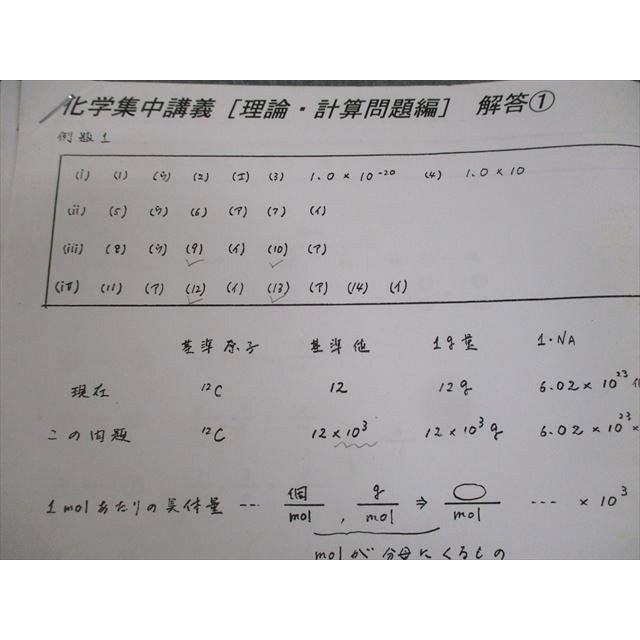 化学集中講義［理論・計算問題編］ 解答①
例題1
(i) (1) (ウ) (2) (エ) (3) 1.0 × 10⁻²⁰ (4) 1.0 × 10
(ii) (5) (ウ) (6) (ア) (7) (イ)
(iii) (8) (ウ) (9) (イ) (10) (ア)
(iV) (11) (ア) (12) (イ) (13) (ア) (14) (イ)
基準原子 基準値 1g量 1・NA
現在 ¹²C 12 12g 6.02 × 10²³
この問題 ¹²C 12 × 10³ 12 × 10³ g 6.02 × 10²³ ×
1molあたりの実体量 --- 個/mol , g/mol ⇒ ○/mol --- × 10³
molが分母にくるもの